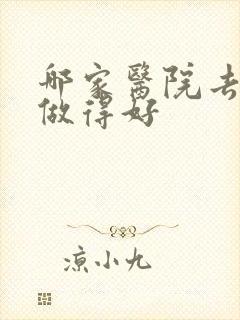 那家醫院去
做得好
涼小九